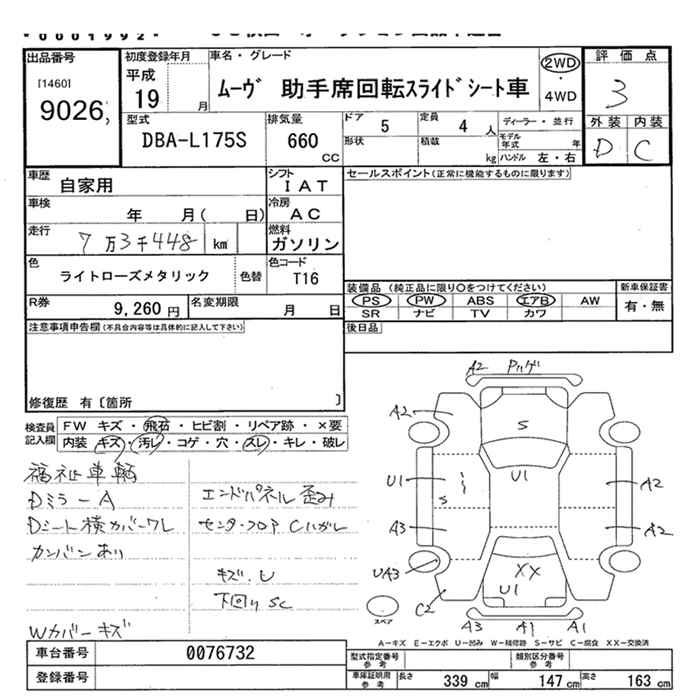 *0001992*
出品番号 初度登録年月 車名・グレード 2WD 評価点
[1460] 平成
9026 19 月 ムーヴ 助手席回転スライドシート車 4WD 3
型式 排気量 ドア 5 定員 4 人 ディーラー・並行 外装 内装
DBA-L175S 660 cc 形状 積載 kg モデル年式 年 D C
ハンドル 左・右
車歴 自家用 シフト IAT セールスポイント(正常に機能するものに限ります)
車検 年 月( 日) 冷房 AC
走行 7万3千448 km 燃料 ガソリン
色 ライトローズメタリック 色替 色コード T16
装備品(純正品に限り○をつけてください) 新車保証書
R券 9,260円 名変期限 月 日 PS PW ABS エアB AW 有・無
SR ナビ TV カワ
注意事項申告欄(不具合内容等は具体的に記入して下さい) 後日品
修復歴 有〔箇所 〕
検査員記入欄 FW キズ・飛石・ヒビ割・リペア跡・×要
内装 キズ・汚レ・コゲ・穴・スレ・キレ・破レ
福祉車輌
Dミラー A エンドパネル歪み
Dシート横カバーワレ センターフロア Cハガレ
カンバンあり
キズ.U
下回り SC
Wカバーキズ
A2
A2 S
U1 S U1 A2
A3 A2
UA3 XX
C2 U1
スペア A3 A1 A1
A-キズ E-エクボ U-凹み W-補修跡 S-サビ C-腐食 XX-交換済
車台番号 0076732 型式指定番号 参考 類別区分番号 参考
登録番号 車庫証明用 参考 長さ 339 cm 幅 147 cm 高さ 163 cm